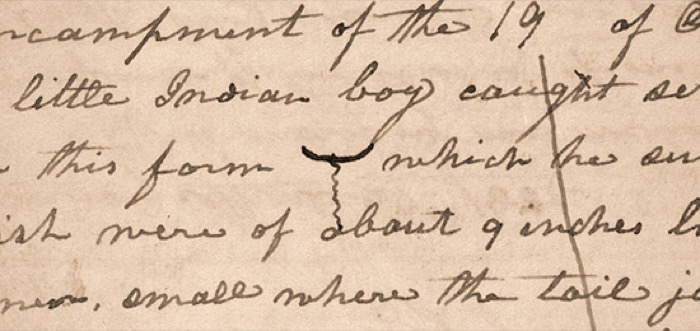 ncampment of the 19 of
little Indian boy caught se
this form which he su
ish were of about 9 inches l
men, small where the tail jo